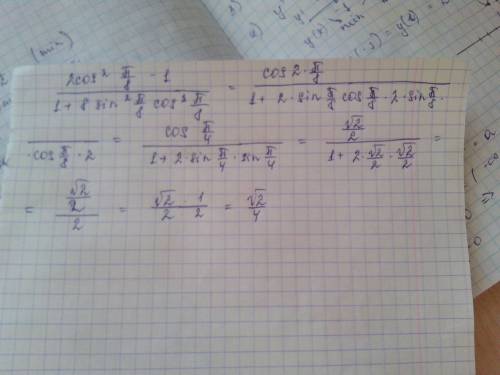 (2cos² π/8 - 1)/(1 + 8 sin² π/8 cos² π/8) = (cos 2 · π/8)/(1 + 2 · sin π/8 cos π/8 · 2 · sin π/8 ·
· cos π/8 · 2) = (cos π/4)/(1 + 2 · sin π/4 · sin π/4) = (√2/2)/(1 + 2 · √2/2 · √2/2) =
= (√2/2)/2 = √2/2 · 1/2 = √2/4